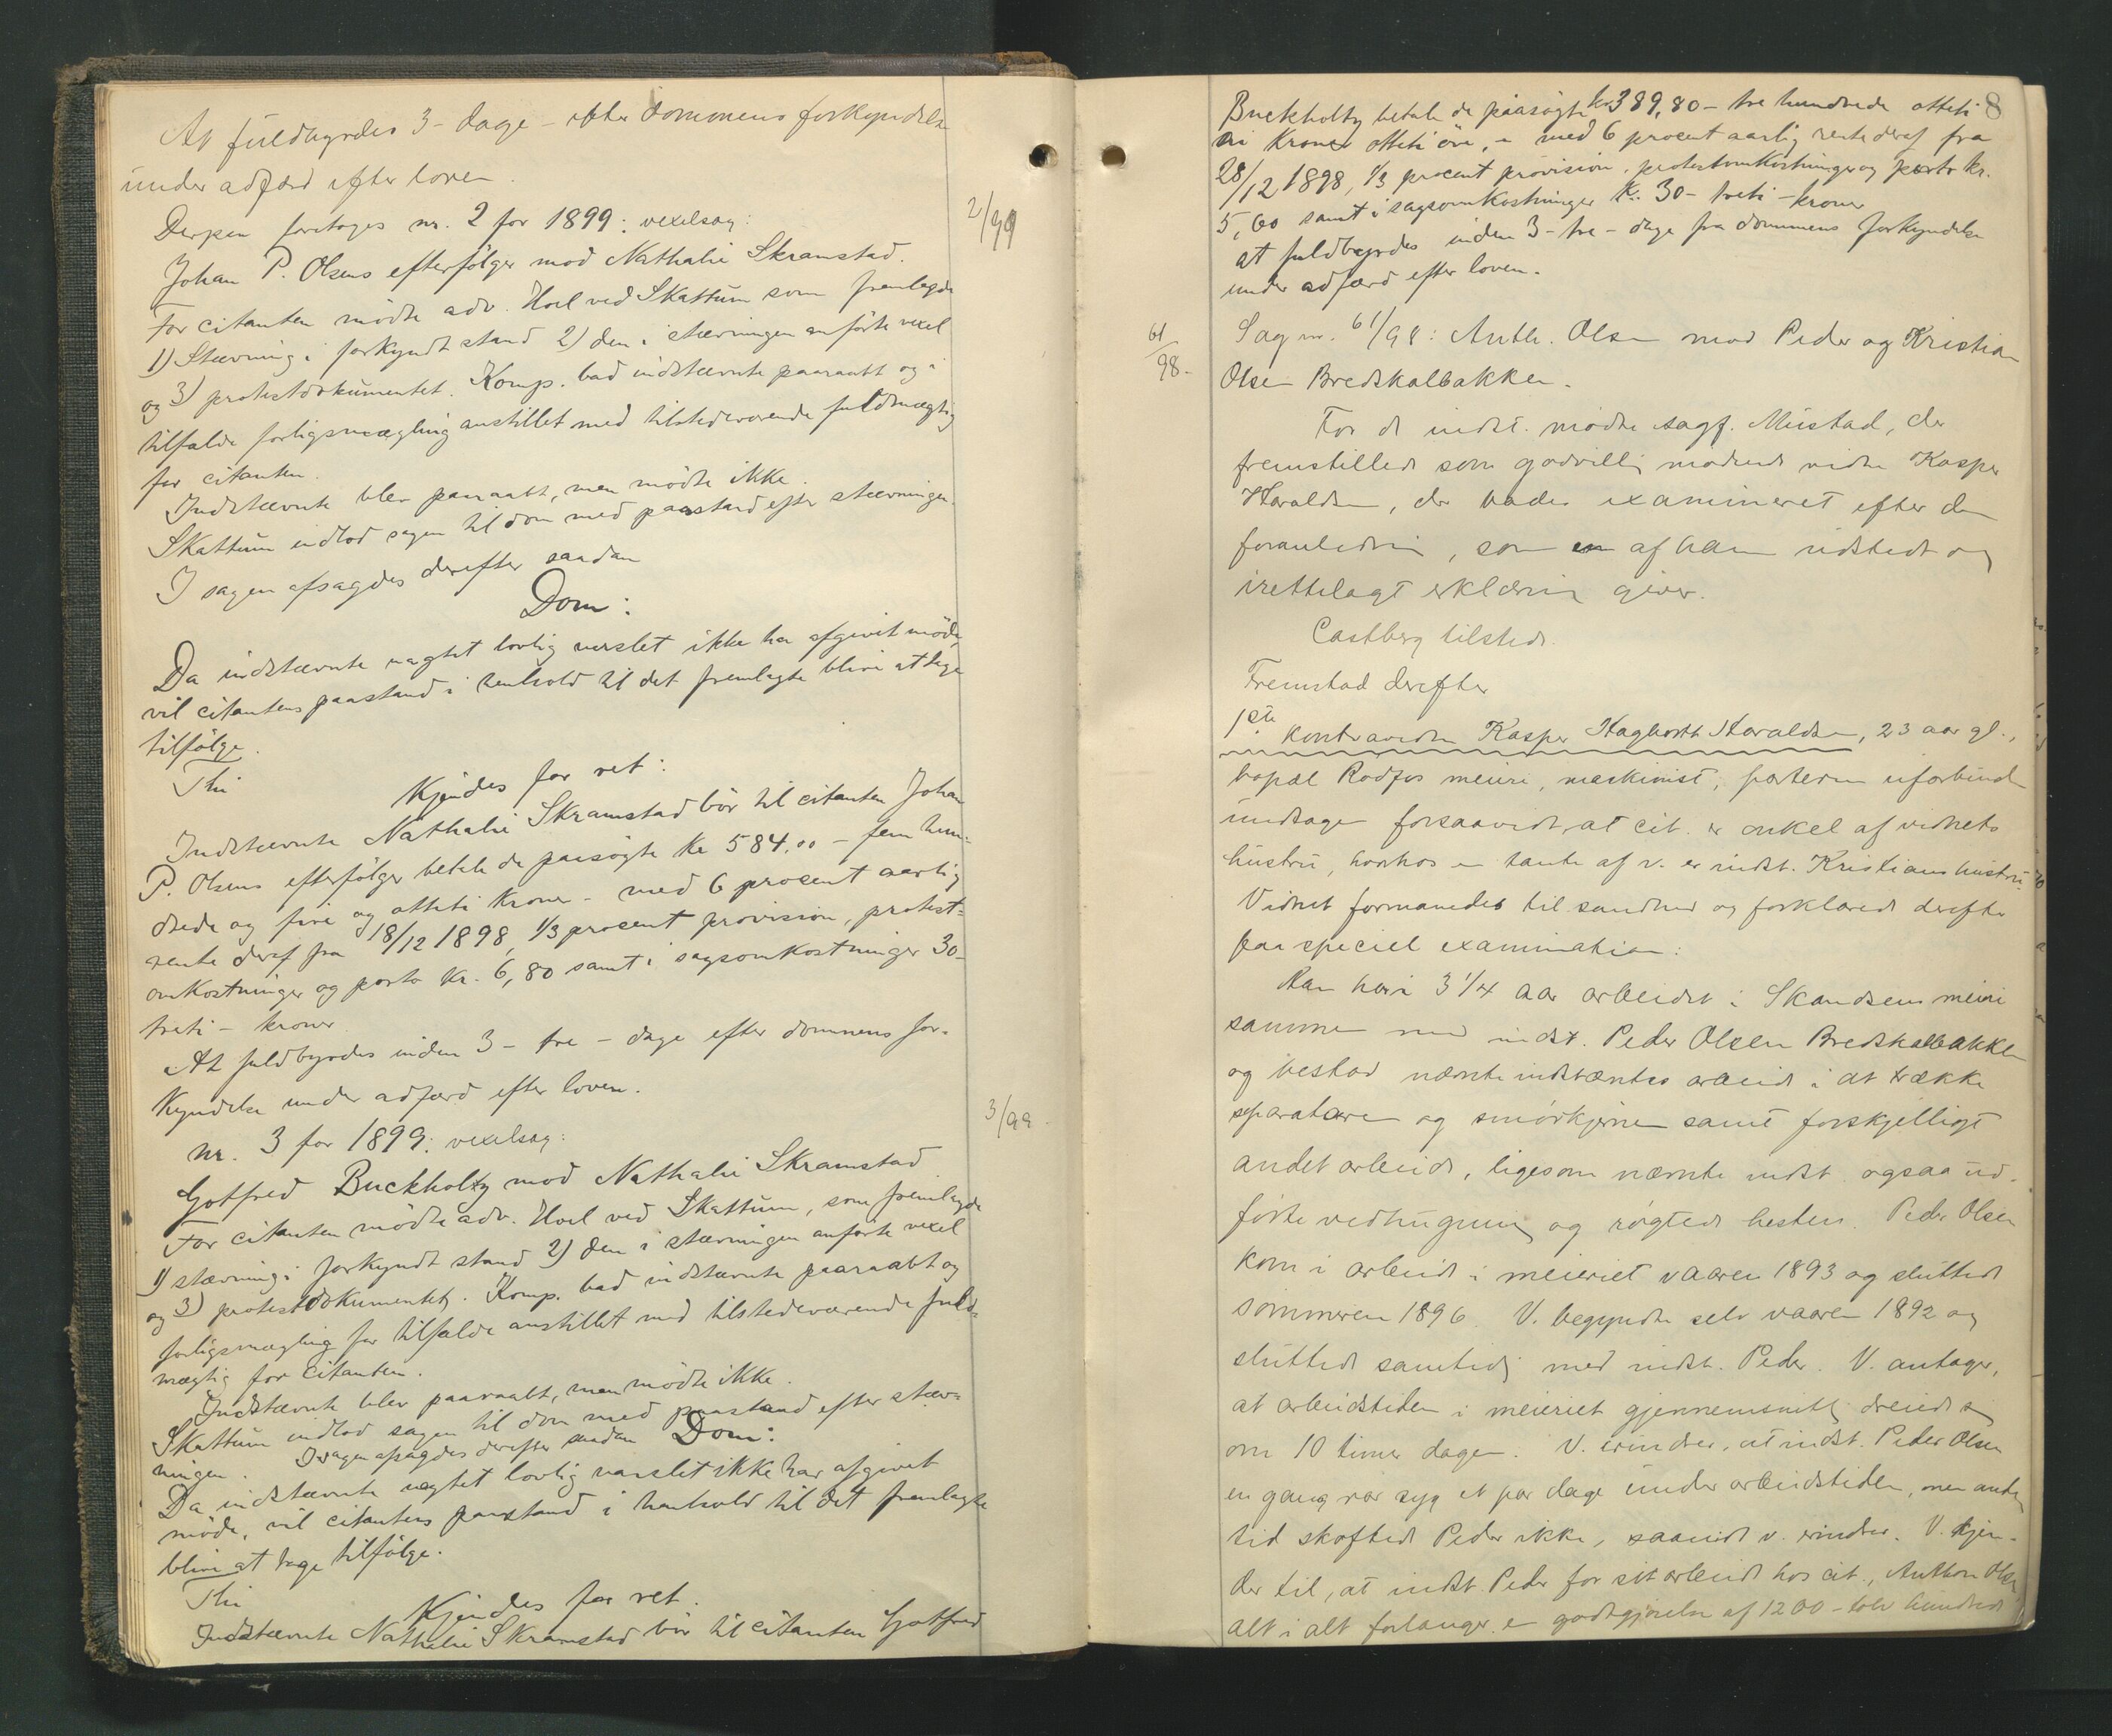 At fuldbyrdes 3 - dage - efter dommens forkyndelse
under adfærd efter loven.
Derpaa foretoges nr. 2 for 1899: vexelsag:
2/99
Johan P. Olsens efterfølger mod Nathalie Skramstad.
For citanten mødte adv. Hoel ved Skattum som fremlagde
1) Stævning i forkyndt stand 2) den i stævningen anførte vexel
og 3) protestdokumentet. Komp. bad indstævnte paaraabt og i
tilfælde forligsmægling anstillet med tilstedeværende fuldmægtig
for citanten.
Indstævnte blev paaraabt, men mødte ikke.
Skattum indlod sagen til dom med paastand efter stævningen.
I sagen afsagdes derefter saadan
Dom:
Da indstævnte uagtet lovlig varslet ikke har afgivet møde,
vil citantens paastand i henhold til det fremlagte blive at tage
tilfølge.
Thi
Kjendes for ret:
Indstævnte Nathalie Skramstad bør til citanten Johan
P. Olsens efterfølger betale de paasøgte Kr 584.00 - fem hun-
drede og fire og otteti Kroner - med 6 procent aarlig
rente deraf fra 18/12 1898, 1/3 procent provision, protest-
omkostninger og porto Kr. 6,80 samt i sagsomkostninger 30-
treti - kroner
At fuldbyrdes inden 3 - tre - dage efter dommens for-
kyndelse under adfærd efter loven.
3/99.
nr. 3 for 1899: vexelsag:
Gotfred Buckholtz mod Nathalie Skramstad
For citanten mødte adv. Hoel ved Skattum, som fremlagde
1) stævning i forkyndt stand 2) den i stævningen anførte vexel
og 3) protestdokumentet. Komp. bad indstævnte paaraabt og
forligsmægling for tilfælde anstillet med tilstedeværende fuld-
mægtig for citanten.
Indstævnte blev paaraabt, men mødte ikke.
Skattum indlod sagen til dom med paastand efter stæv-
ningen. I sagen afsagdes derefter saadan Dom:
Da indstævnte uagtet lovlig varslet ikke har afgivet
møde, vil citantens paastand i henhold til det fremlagte
blive at tage tilfølge.
Thi
Kjendes for ret.
Indstævnte Nathalie Skramstad bør til citanten Gotfred
8
Buckholtz betale de paasøgte kr 389,80 - tre hundrede otteti
ni Kroner otteti øre, - med 6 procent aarlig rente deraf fra
28/12 1898, 1/3 procent provision, protestomkostninger og porto kr.
5,60 samt i sagsomkostninger kr. 30 - treti - kroner
at fuldbyrdes inden 3 - tre - dage fra dommens forkyndelse
under adfærd efter loven.
61/98.
Sag nr. 61/98: Anth. Olsen mod Peder og Kristian
Olsen Bredskalbakken.
For de indst. mødte sagf. Mustad, der
fremstillede som godvillig mødende vidne Kasper
Haraldsen, der bades examineret efter den
foranledning, som en af ham udstedt og
irettelagt erklæring giver.
Castberg tilstede.
Fremstod derefter
1ste kontravidne Kasper Hagbarth Haraldsen, 23 aar gl.,
bopæl Rødfos meieri, maskinist, parterne uforbunden
undtagen forsaavidt, at cit. er onkel af vidnets
hustru, hvorhos en tante af v. er indst. Kristians hustru.
Vidnet formanedes til sandhed og forklarede derefter
paa speciel examination:
Han har i 3 1/4 aar arbeidet i Skandsens meieri
sammen med indst. Peder Olsen Bredskalbakken
og bestod nævnte indstævntes arbeid i at trække
separatoren og smørkjernen samt forskjelligt
andet arbeide, ligesom nævnte indst. ogsaa ud-
førte vedhugning og røgtede hesten. Peder Olsen
kom i arbeide i meieriet vaaren 1893 og sluttede
sommeren 1896. V. begyndte selv vaaren 1892 og
sluttede samtidig med indst. Peder. V. antager,
at arbeidstiden i meieriet gjennemsnitlig dreiede sig
om 10 timer dagen. V. erindrer, at indst. Peder Olsen
en gang var syg et par dage under arbeidstiden, men anden
tid skoftede Peder ikke, saavidt v. erindrer. V. kjen-
der til, at indst. Peder for sit arbeide hos cit., Anthon Olsen
alt i alt forlanger en godtgjørelse af 1200 - tolv hundrede